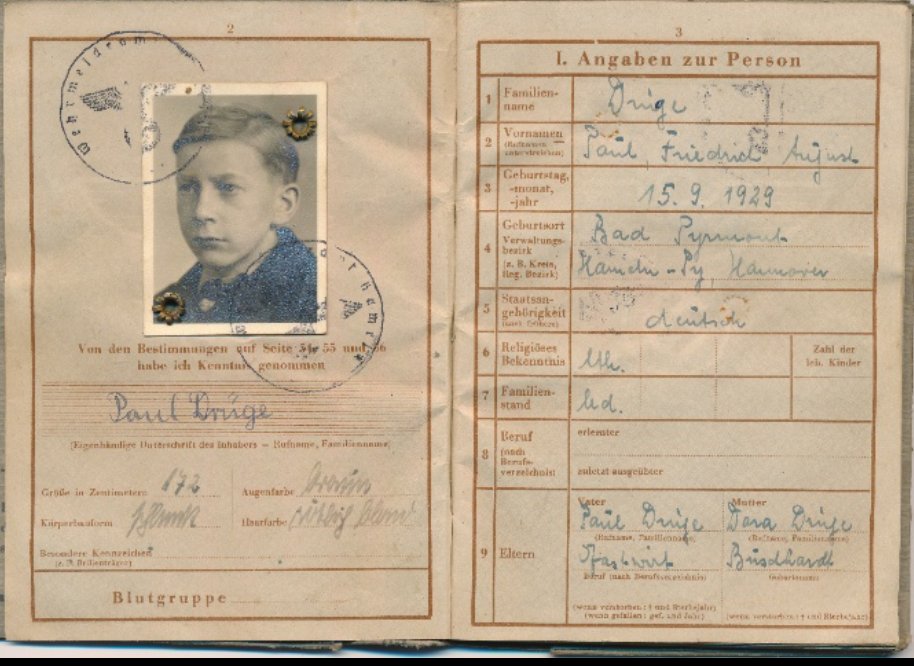 2
Wehrmeldeam
Von den Bestimmungen auf Seite 54, 55 und 56
habe ich Kenntnis genommen
Paul Drüge
(Eigenhändige Unterschrift des Inhabers – Rufname, Familienname)
Größe in Zentimeter: 172
Augenfarbe braun
Körperbauform schlank
Haarfarbe rötlich blond
Besondere Kennzeichen
(z. B. Brillenträger)
Blutgruppe
3
I. Angaben zur Person
1 Familienname Drüge
2 Vornamen Paul, Friedrich August
(Rufnamen unterstreichen)
3 Geburtstag, -monat, -jahr 15. 9. 1929
4 Geburtsort Bad Pyrmont
Verwaltungsbezirk
(z. B. Kreis, Reg. Bezirk) Hameln-Py, Hannover
5 Staatsangehörigkeit deutsch
(auch frühere)
6 Religiöses Bekenntnis
Zahl der leb. Kinder
7 Familienstand led.
8 Beruf
(nach Berufsverzeichnis)
erlernter
zuletzt ausgeübter
9 Eltern
Vater
Mutter
Paul Drüge
Dora Drüge
(Rufname, Familienname)
(Rufname, Familienname)
Gastwirt
Beruf (nach Berufsverzeichnis)
Geburtsname
(wenn verstorben: † und Sterbejahr)
(wenn gefallen: gef. und Jahr)
(wenn verstorben: † und Sterbejahr)